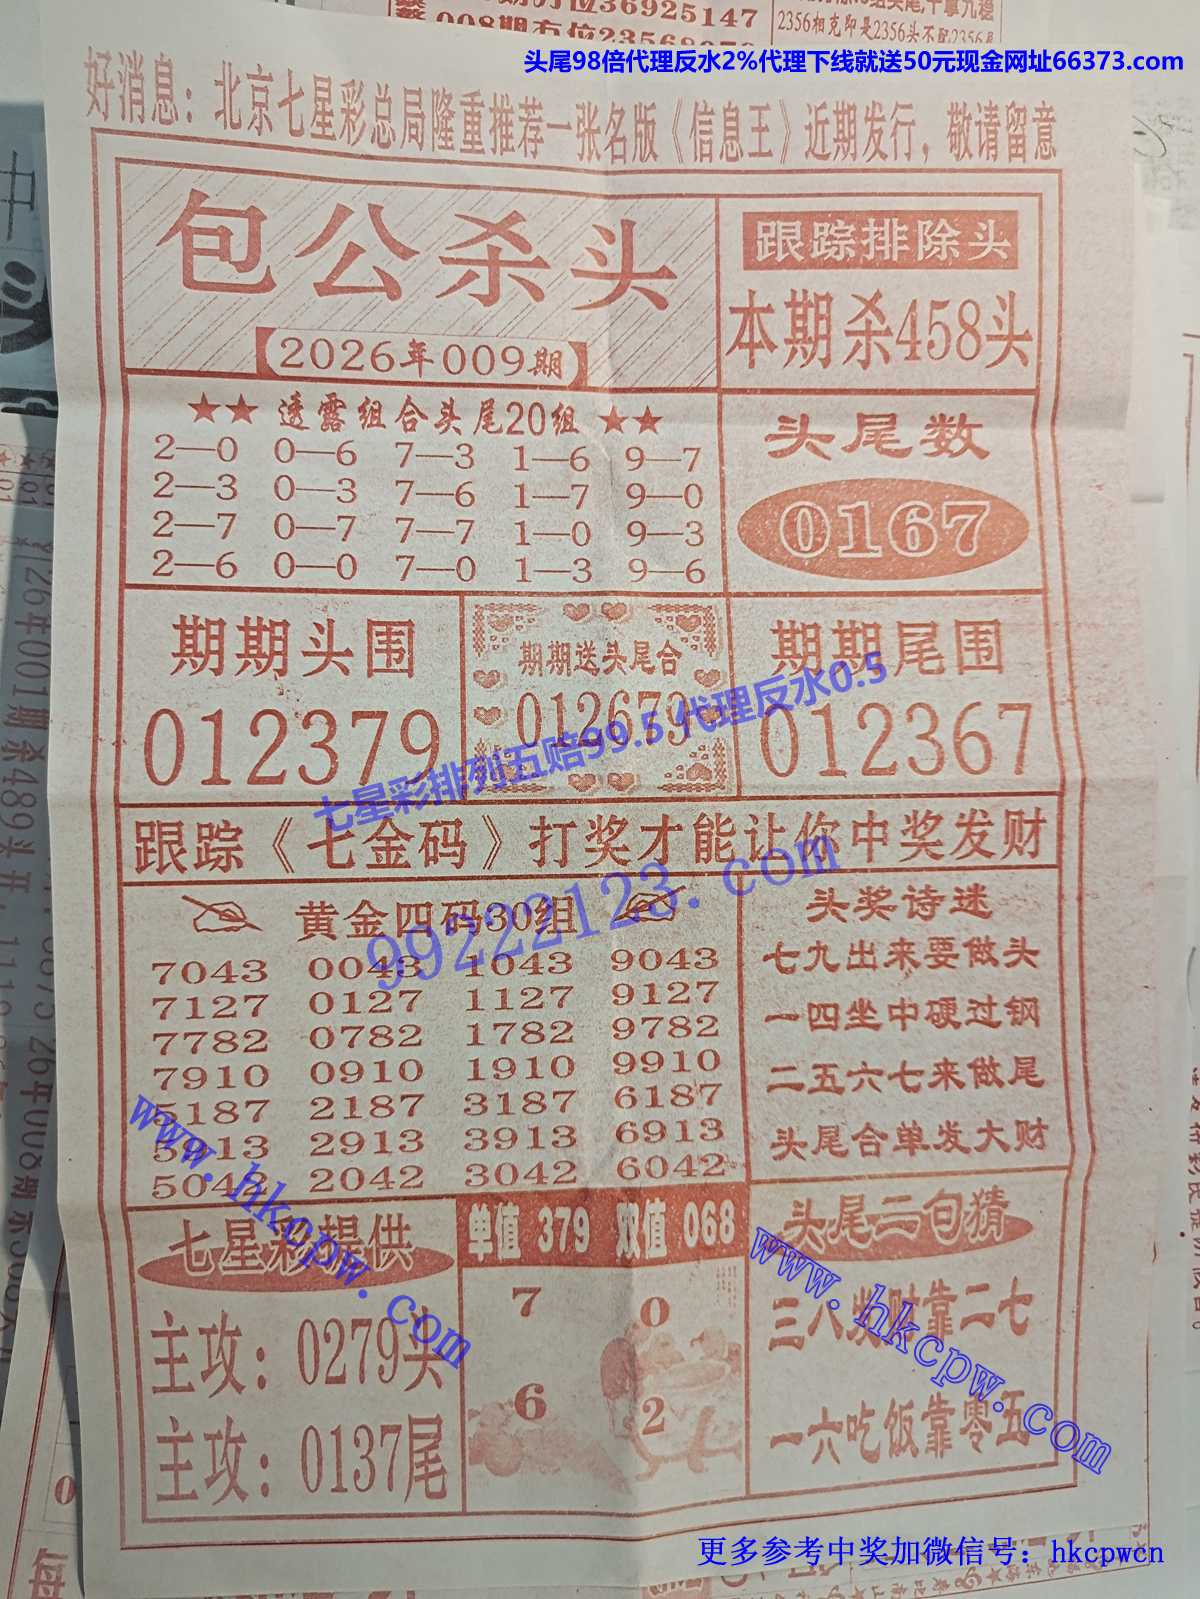 期方位36925147
008期方位23568
2356相克即是2356头不配2356尾
头尾98倍代理反水2%代理下线就送50元现金网址66373.com
好消息：北京七星彩总局隆重推荐一张名版《信息王》近期发行，敬请留意
包公杀头
【2026年009期】
跟踪排除头
本期杀458头
★★ 透露组合头尾20组 ★★
2—0 0—6 7—3 1—6 9—7
2—3 0—3 7—6 1—7 9—0
2—7 0—7 7—7 1—0 9—3
2—6 0—0 7—0 1—3 9—6
头尾数
0167
期期头围
012379
期期送头尾合
012679
期期尾围
012367
七星彩排列五赔99.5 代理反水0.5
跟踪《七金码》打奖才能让你中奖发财
99222123.com
黄金四码30组
7043 0043 1043 9043
7127 0127 1127 9127
7782 0782 1782 9782
7910 0910 1910 9910
5187 2187 3187 6187
5913 2913 3913 6913
5042 2042 3042 6042
头奖诗迷
七九出来要做头
一四坐中硬过钢
二五六七来做尾
头尾合单发大财
www.hkcpw.com
七星彩提供
主攻：0279头
主攻：0137尾
单值 379 双值 068
7 0
6 2
头尾二句精
三八发财靠二七
一六吃饭靠零五
www.hkcpw.com
更多参考中奖加微信号：hkcpwcn